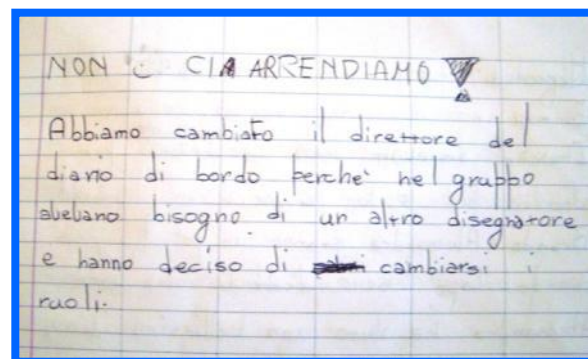 NON CI ARRENDIAMO!
Abbiamo cambiato il direttore del
diario di bordo perchè nel gruppo
avevano bisogno di un altro disegnatore
e hanno deciso di cambiarsi i
ruoli.